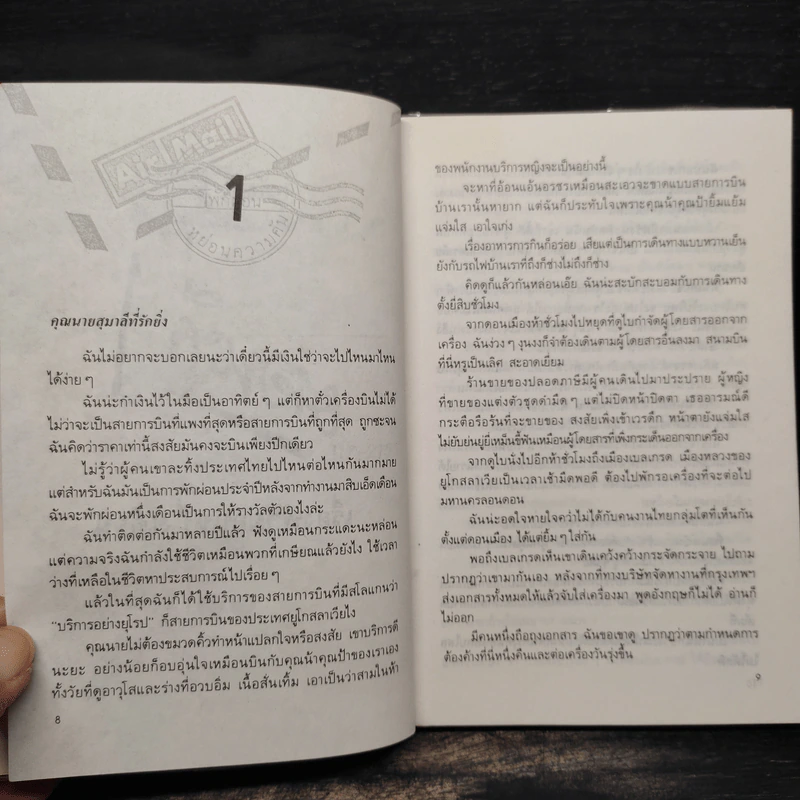 Air Mail
1
หย่อนความคิด
คุณนายสุมาลีที่รักยิ่ง
ฉันไม่อยากจะบอกเลยนะว่าเดี๋ยวนี้มีเงินใช่ว่าจะไปไหนมาไหน
ได้ง่าย ๆ
ฉันน่ะกำเงินไว้ในมือเป็นอาทิตย์ ๆ แต่ก็หาตั๋วเครื่องบินไม่ได้
ไม่ว่าจะเป็นสายการบินที่แพงที่สุดหรือสายการบินที่ถูกที่สุด ถูกซะจน
ฉันคิดว่าราคาเท่านี้สงสัยมันคงจะบินเพียงปีกเดียว
ไม่รู้ว่าผู้คนเขาละทิ้งประเทศไทยไปไหนต่อไหนกันมากมาย
แต่สำหรับฉันมันเป็นการพักผ่อนประจำปีหลังจากทำงานมาสิบเอ็ดเดือน
ฉันจะพักผ่อนหนึ่งเดือนเป็นการให้รางวัลตัวเองไงล่ะ
ฉันทำติดต่อกันมาหลายปีแล้ว ฟังดูเหมือนกระแดะนะหล่อน
แต่ความจริงฉันกำลังใช้ชีวิตเหมือนพวกที่เกษียณแล้วยังไง ใช้เวลา
ว่างที่เหลือในชีวิตหาประสบการณ์ไปเรื่อย ๆ
แล้วในที่สุดฉันก็ได้ใช้บริการของสายการบินที่มีสโลแกนว่า
"บริการอย่างยุโรป" ก็สายการบินของประเทศยูโกสลาเวียไง
คุณนายไม่ต้องขมวดคิ้วทำหน้าแปลกใจหรือสงสัย เขาบริการดี
นะยะ อย่างน้อยก็อบอุ่นใจเหมือนบินกับคุณน้าคุณป้าของเราเอง
ทั้งวัยที่ดูอาวุโสและร่างที่อวบอิ่ม เนื้อสั่นเทิ้ม เอาเป็นว่าสามในห้า
8
ของพนักงานบริการหญิงจะเป็นอย่างนี้
จะหาที่อ้อนแอ้นอรชรเหมือนสะเอวจะขาดแบบสายการบิน
บ้านเรานั้นหายาก แต่ฉันก็ประทับใจเพราะคุณน้าคุณป้ายิ้มแย้ม
แจ่มใส เอาใจเก่ง
เรื่องอาหารการกินก็อร่อย เสียแต่เป็นการเดินทางแบบหวานเย็น
ยังกับรถไฟบ้านเราที่ถึงก็ช่างไม่ถึงก็ช่าง
คิดดูก็แล้วกันหล่อนเอ๊ย ฉันน่ะสะบักสะบอมกับการเดินทาง
ตั้งยี่สิบชั่วโมง
จากดอนเมืองห้าชั่วโมงไปหยุดที่ดูไบกำจัดผู้โดยสารออกจาก
เครื่อง ฉันง่วง ๆ งุนงงก็จำต้องเดินตามผู้โดยสารอื่นลงมา สนามบิน
ที่นี่หรูเป็นเลิศ สะอาดเยี่ยม
ร้านขายของปลอดภาษีมีผู้คนเดินไปมาประปราย ผู้หญิง
ที่ขายของแต่งตัวชุดดำมืด ๆ แต่ไม่ปิดหน้าปิดตา เธออารมณ์ดี
กระตือรือร้นที่จะขายของ สงสัยเพิ่งเข้าเวรดึก หน้าตายังแจ่มใส
ไม่ยับย่นยู่ยี่เหม็นขี้ฟันเหมือนผู้โดยสารที่เพิ่งกระเด็นออกจากเครื่อง
จากดูไบนั่งไปอีกห้าชั่วโมงถึงเมืองเบลเกรด เมืองหลวงของ
ยูโกสลาเวียเป็นเวลาเช้ามืดพอดี ต้องไปพักรอเครื่องที่จะต่อไป
มหานครลอนดอน
ฉันน่ะอดใจหายใจคว่ำไม่ได้กับคนงานไทยกลุ่มโตที่เห็นกัน
ตั้งแต่ดอนเมือง ได้แต่ยิ้ม ๆ ใส่กัน
พอถึงเบลเกรดเห็นเขาเดินเคว้งคว้างกระจัดกระจาย ไปถาม
ปรากฏว่าเขามากันเอง หลังจากที่ทางบริษัทจัดหางานที่กรุงเทพฯ
ส่งเอกสารทั้งหมดให้แล้วจับใส่เครื่องมา พูดอังกฤษก็ไม่ได้ อ่านก็
ไม่ออก
มีคนหนึ่งถือถุงเอกสาร ฉันขอเขาดู ปรากฏว่าตามกำหนดการ
ต้องค้างที่นี่หนึ่งคืนและต่อเครื่องวันรุ่งขึ้น
9